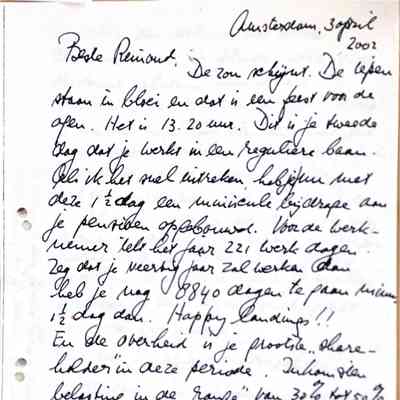 Amsterdam, 3 april
2002
Beste Reinoud,
De zon schijnt. De iepen
staan in bloei en dat is een feest voor de
ogen. Het is 13.20 uur. Dit is je tweede
dag dat je werkt in een reguliere baan.
Als ik het snel uitreken, heb je nu met
deze 1½ dag een miniscule bijdrage aan
je pensioen opgebouwd. Voor de werk-
nemer telt het jaar 221 werkdagen.
Zeg dat je veertig jaar zal werken dan
heb je nog 8840 dagen te gaan minus
1½ dag dan. Happy landings!!
En de overheid is je grootste "share-
holder" in deze periode. Inkomsten
belasting in de "range" van 30% tot 50%